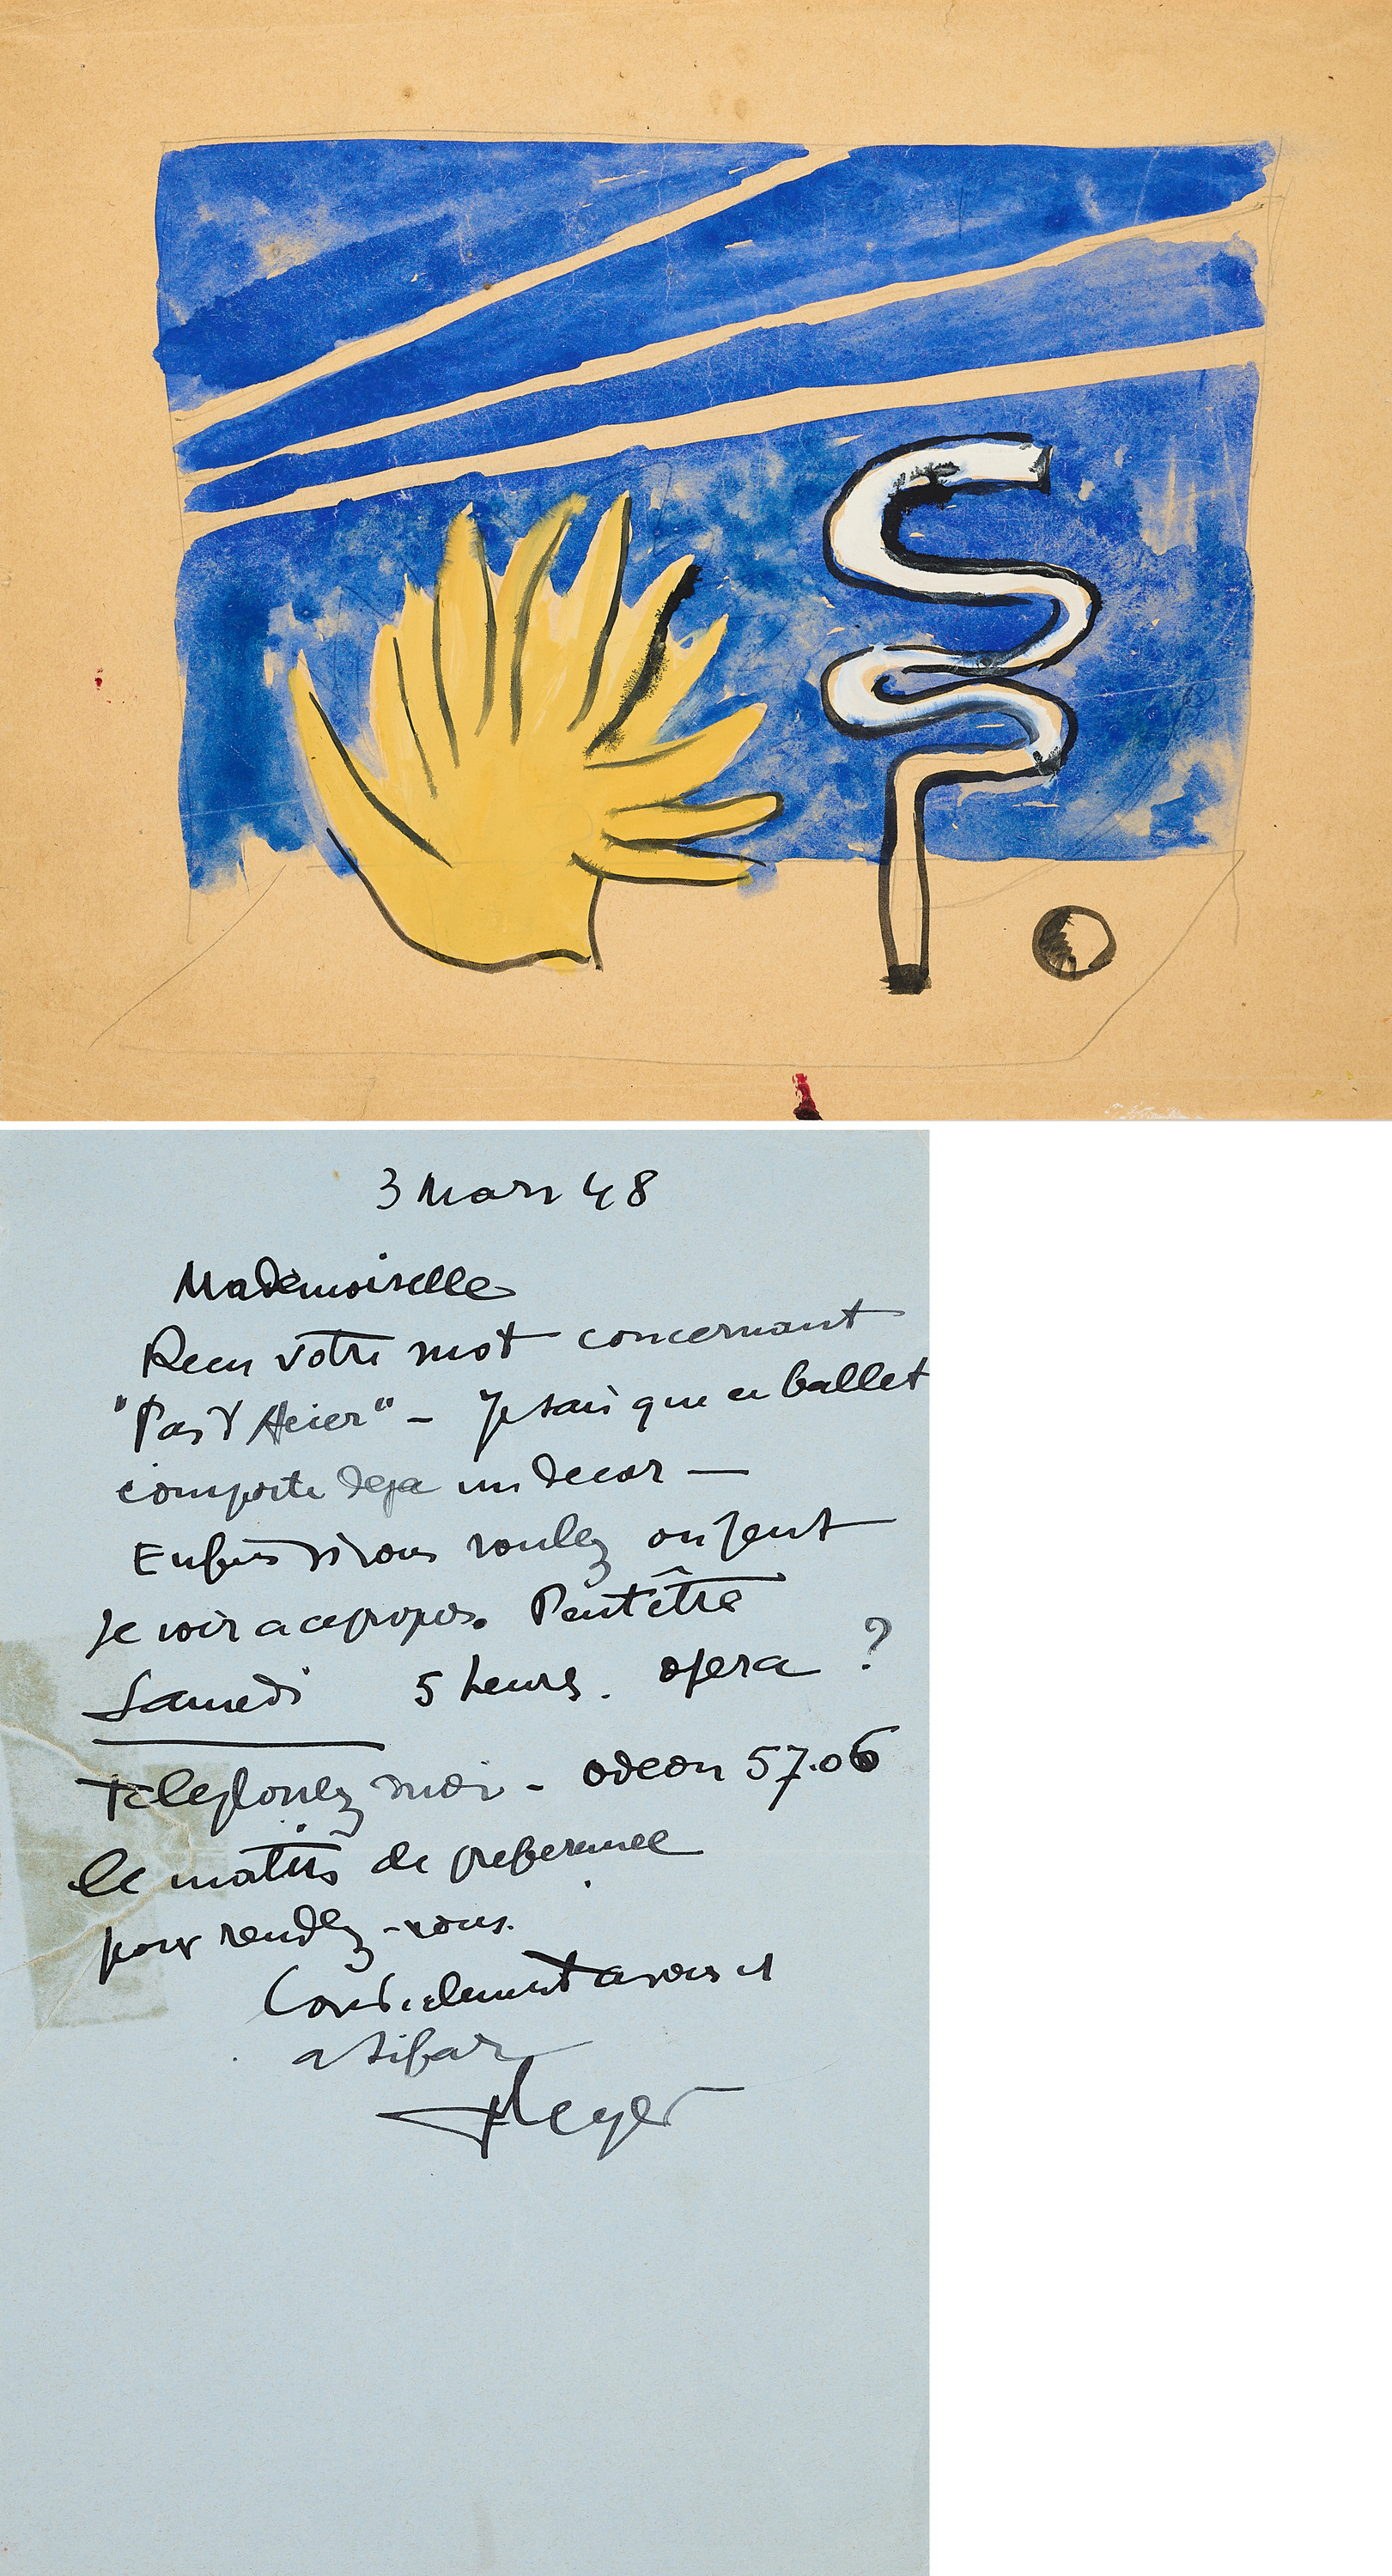 3 Mars 48
Mademoiselle
Recu votre mot concernant
"Pas d'Acier" – Je sais que ce ballet
comporte deja un decor —
Enfin si vous voulez on peut
se voir a ce propos. Peut être
Samedi 5 heures. opera ?
Telephonez moi - odeon 57.06
le matin de preference
pour rendez-vous.
Cordialement a vous et
a Lifar
FLeger